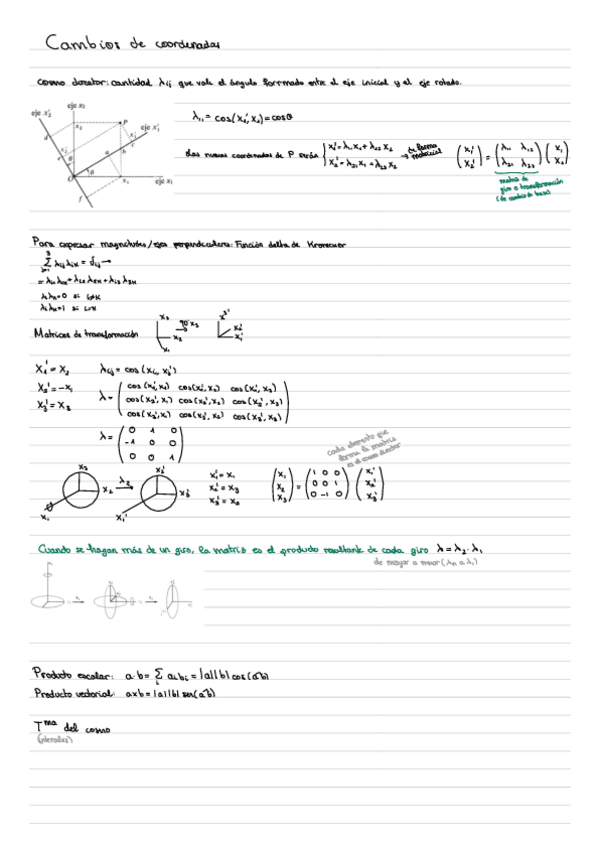 Cambios de coordenadas
coseno director: cantidad λij que vale el ángulo formado entre el eje inicial y el eje rotado.
eje x₂
eje x₂'
eje x₁'
eje x₁
λ₁₁ = cos(x₁',x₁) = cosθ
Las nuevas coordenadas de P serán { x₁' = λ₁₁x₁ + λ₁₂x₂
x₂' = λ₂₁x₁ + λ₂₂x₂
de forma matricial
(x₁' x₂') = (λ₁₁ λ₁₂ λ₂₁ λ₂₂)(x₁ x₂)
matriz de
giro o transformación
(de cambio de base)
Para expresar magnitudes/ejes perpendiculares: Función delta de Kronecker
Σ λij λik = δij →
= λ₁ λ₁k + λ₂ λ₂k + λ₃ λ₃k
λiλk=0 si i≠k
λiλk=1 si i=k
Matrices de transformación
x₃
x₂
x₁
90° x₃
x³'
x₂'
x₁'
X₁' = X₂
X₂' = -X₁
X₃' = X₃
λij = cos(xi, xj')
λ = ( cos(x₁',x₁) cos(x₁',x₂) cos(x₁',x₃)
cos(x₂',x₁) cos(x₂',x₂) cos(x₂',x₃)
cos(x₃',x₁) cos(x₃',x₂) cos(x₃',x₃) )
λ = ( 0 1 0
-1 0 0
0 0 1 )
cada elemento que
forma la matriz
es el coseno director
x₃
x₂
x₁
λ₂
x₂'
x₃'
x₁'
x₁' = x₁
x₂' = x₃
x₃' = x₂
(x₁ x₂ x₃) = (1 0 0
0 0 1
0 -1 0) (x₁' x₂' x₃')
Cuando se hagan más de un giro, la matriz es el producto resultante de cada giro λ = λ₂ · λ₁
de mayor a menor (λn a λ₁)
Producto escalar: a·b = Σ aᵢbᵢ = |a||b| cos(a^b)
Producto vectorial: axb = |a||b| sen(a^b)
Tma del coseno